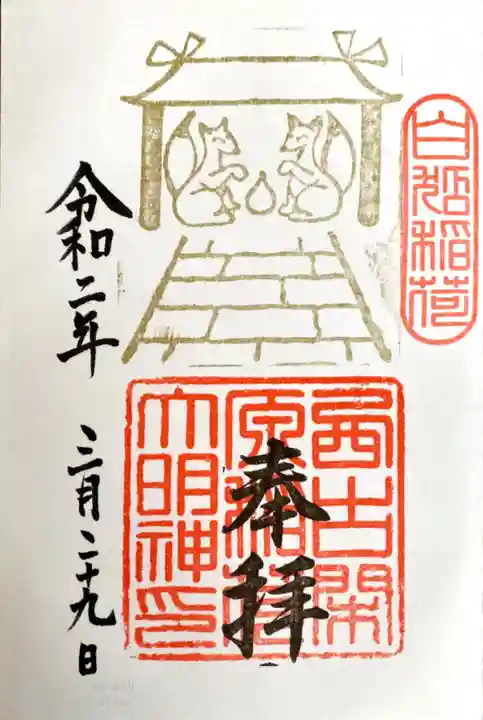 白 稲荷
奉拝
西古閑
原稲荷
大明神印
令和二年 三月二十九日